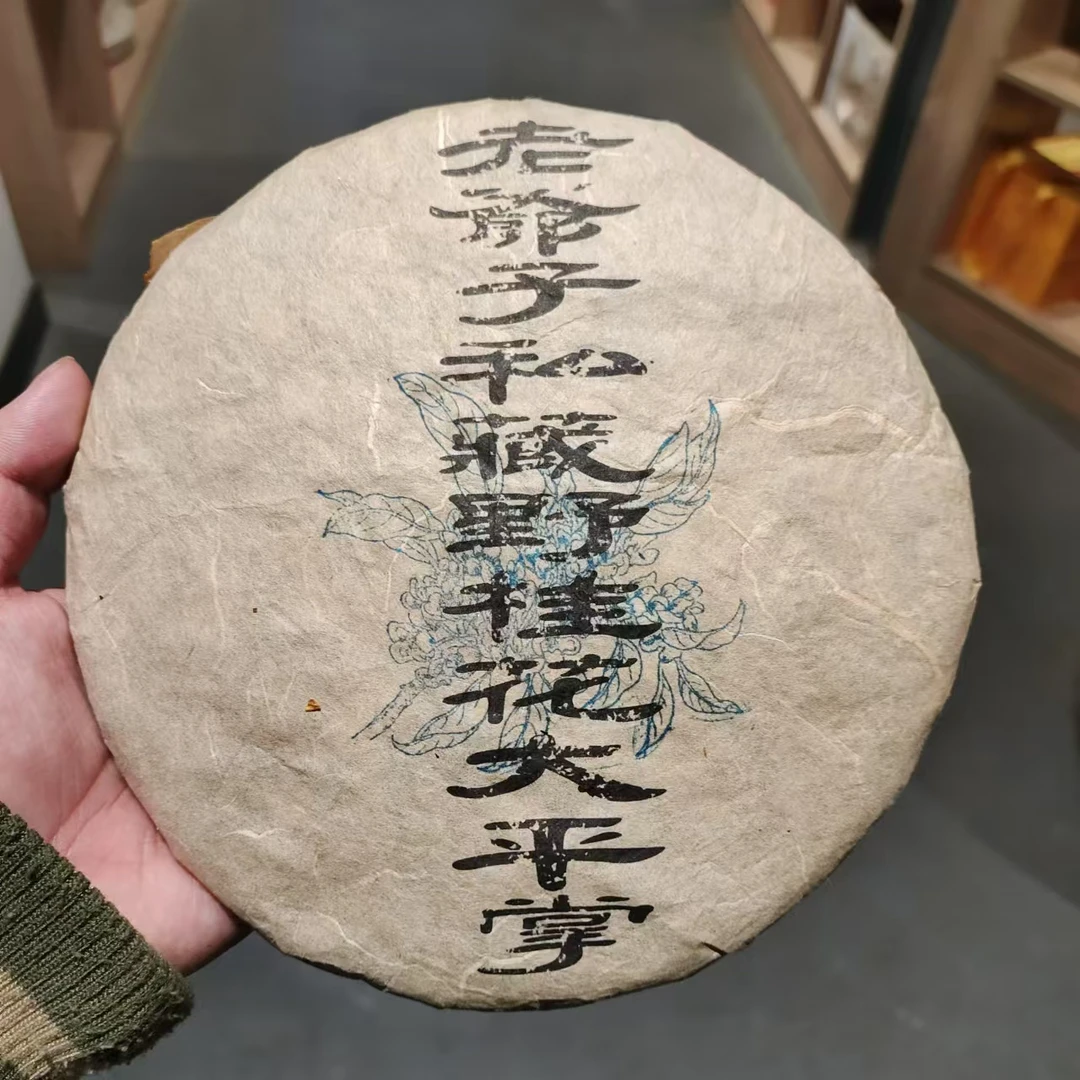 老爺子私藏野桂花大平掌